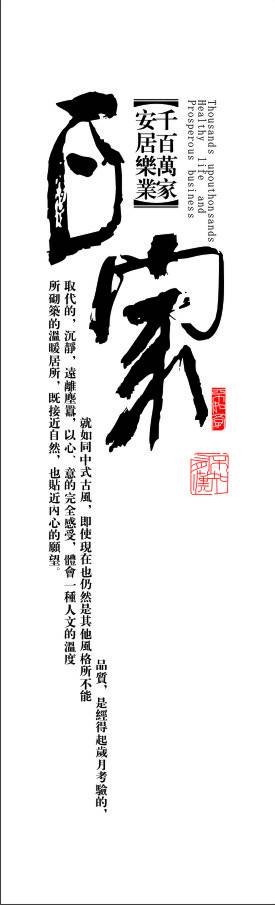 Thousands upouthonsands
Healthy life and
Prosperous business
【千百萬家
安居樂業】
品質，是經得起歲月考驗的，
就如同中式古風，即使現在也仍然是其他風格所不能
取代的，沉靜，遠離塵囂，以心、意的完全感受，體會一種人文的溫度
所砌築的溫暖居所，既接近自然，也貼近內心的願望。